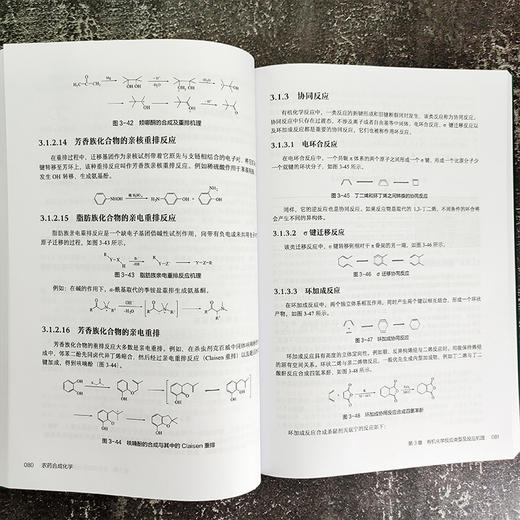 图 3-42 频哪酮的合成及重排机理
3.1.2.14 芳香族化合物的亲核重排反应
在重排过程中，迁移基团作为亲核试剂带着它原先与支链相结合的电子对，将
键转移至芳环上，该种重排反应叫作芳香族亲核重排反应。例如稀硫酸作用于苯基羟胺
发生 OH 转移，生成氨基酚。
3.1.2.15 脂肪族化合物的亲电重排反应
脂肪族亲电重排反应是一个缺电子基团仿碱性试剂作用，向带有负电或未共用
原子迁移的过程，如图 3-43 所示。
图 3-43 脂肪族亲电重排反应机理
例如：在碱的作用下，α-酰基取代的季铵盐重排生成氨基酮。
3.1.2.16 芳香族化合物的亲电重排
芳香族化合物的重排反应大多数是亲电重排。例如，在杀虫剂克百威中间体呋喃酚的
成中，邻苯二酚先同卤代异丁烯结合，然后经过亲电重排反应（Claisen 重排）
键加成，得到呋喃酚（图 3-44）。
图 3-44 呋喃酚的合成与其中的 Claisen 重排
080 农药合成化学
3.1.3 协同反应
有机化学反应中，一类反应的新键形成和旧键断裂同时发生，该类反应称为协同反应。
协同反应中只存在过渡态，不涉及离子或者自由基等中间体。电环合反应、σ 键迁移反应以
及环加成反应都是重要的协同反应，它们也被称作周环反应。
3.1.3.1 电环合反应
在电环合反应中，一个共轭 π 体系的两个原子之间形成一个 σ 键，形成一个比原分子少
一个双键的环状分子，如图 3-45 所示。
图 3-45 丁二烯和环丁烯之间转换的协同反应
同样，它的逆反应也是协同反应。如果反应物是取代的 1,3-丁二烯，不同条件的环合将
会产生不同的异构体。
3.1.3.2 σ 键迁移反应
该类迁移反应中，σ 键转移到相对于 π 骨架的另一端，如图 3-46 所示。
图 3-46 σ 迁移协同反应
3.1.3.3 环加成反应
在环加成反应中，两个独立体系相互作用，同时产生两个键以相互结合，形成一个环状
产物，如图 3-47 所示。
图 3-47 环加成协同反应
环加成反应具有高度的立体定向性，例如顺、反异构烯烃与二烯反应时，均能保持烯烃
的原有空间关系。环状二烯与亲二烯物反应，一般优先生成内型加成物，例如丁二烯与丁二
酸酐反应合成四氢苯酐，如图 3-48 所示。
图 3-48 环加成协同反应合成四氢苯酐
环加成反应合成杀鼠剂灭鼠宁的反应如下：
第 3 章 有机化学反应类型及反应机理 081